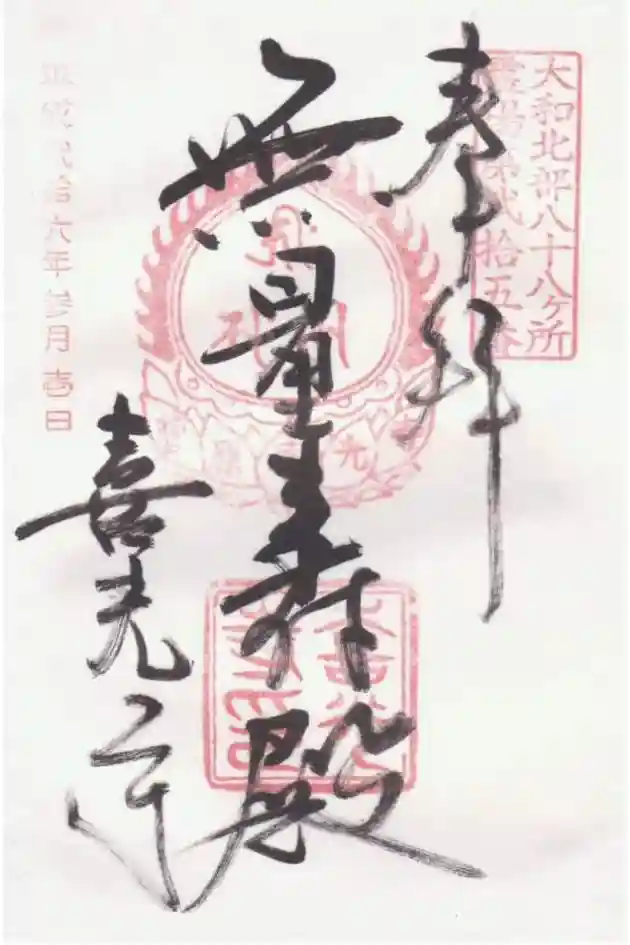 大和北部八十八ヶ所
霊場第弐拾五番
奉拝
無量寿殿
喜光寺
平成弐拾六年参月壱日